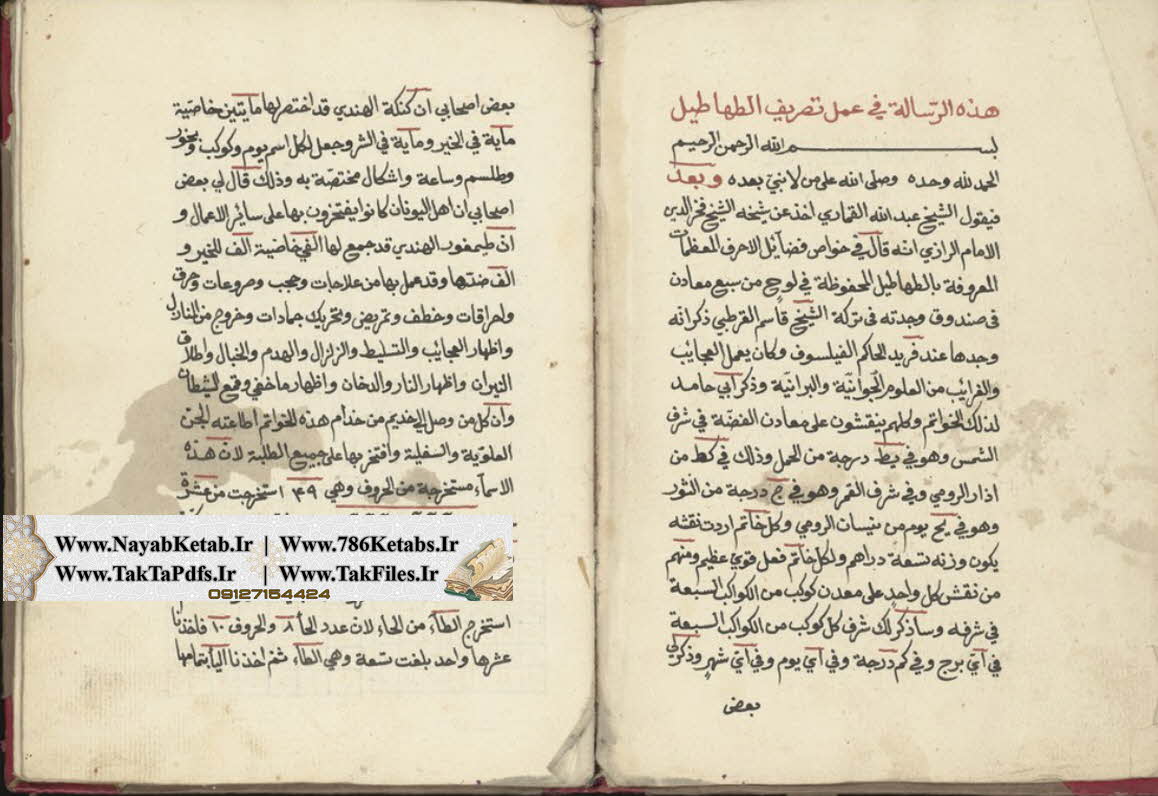 هذه الرّسالة في عمل تصريف الطهاطيل
بسم الله الرحمن الرحيم
الحمد لله وحده وصلى الله على من لا نبيّ بعده وبعد
فيقول الشيخ عبد الله القماري اخذ عن شيخه الشيخ فخر الدين
الامام الرازي انه قال في خواص فضآيل الاحرف المعظمات
المعروفة بالطهاطيل المحفوظة في لوح من سبع معادن
في صندوق وجدته في تركة الشيخ قاسم القرطبي ذكر انه
وجدها عند فريد الحاكم الفيلسوف وكان يعمل العجايب
والغرايب من العلوم الجوانية والبرانية وذكر ابي حامد
لذلك الخواتم وكلهم ينقشون على معادن الفضة في شرف
الشمس وهو في يط درجة من الحمل وذلك في كط من
اذار الرومي وفي شرف القمر وهو في ج درجة من الثور
وهو في يح يوم من نيسان الرومي وكل خاتم اردت نقشه
يكون وزنه تسعة دراهم ولكل خاتم فعل قوي عظيم ومنهم
من نقش كل واحد على معدن كوكب من الكواكب السبعة
في شرفه وسأذكر لك شرف كل كوكب من الكواكب السبعة
في اي برج وفي كم درجة وفي اي يوم وفي اي شهر وذكر لي
بعض
بعض اصحابي ان كنكة الهندي قد اختصر لها مايتين خاصية
ماية في الخير وماية في الشر وجعل لكل اسم يوم وكوكب وبخور
وطلسم وساعة واشكال مختصة به وذلك قال لي بعض
اصحابي ان اهل اليونان كانوا يفتخرون بها على ساير الاعمال و
ان طيمفور الهندي قد جمع لها الفي خاصية الف للخير و
الف ضدها وقد عمل بها من علاجات وحجب وصروعات وحرق
واحراقات وخطف وتمريض وتحريك جمادات وخروج من المنازل
واظهار العجايب والتسليط والزلزال والهدم والخبال واطلاق
النيران واظهار النار والدخان واظهار ما خفي وقمع الشيطان
وان كل من وصل الى خديم من خدام هذه الخواتم اطاعته الجن
العلوية والسفلية وافتخر بها على جميع الطلبة لان هذه
الاسمآء مستخرجة من الحروف وهي ٤٩ استخرجت من عشرة
Www.NayabKetab.Ir | Www.786Ketabs.Ir
Www.TakTaPdfs.Ir | Www.TakFiles.Ir
09127154424
استخرج الطآء من الحاء لان عدد الحا ٨ والحروف ١٠ فاخذنا
عشرها واحد بلغت تسعة وهي الطآء ثم اخذنا اليا بتمامها